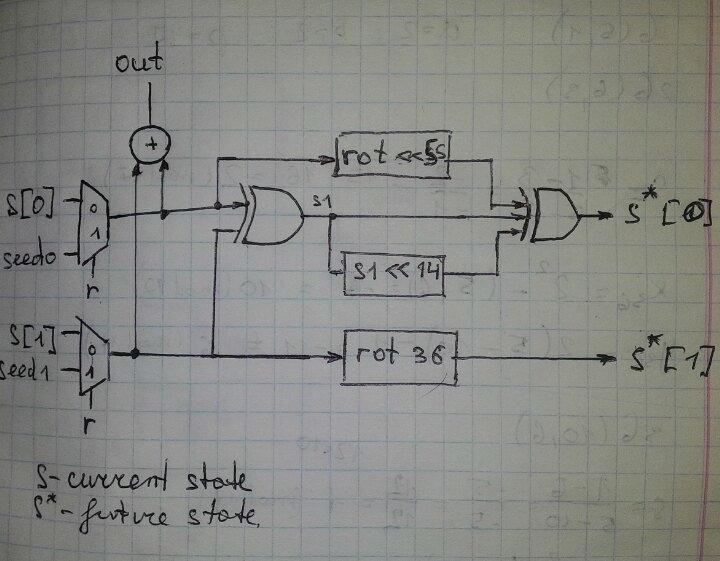 out
+
rot <<55
S[0]
0
1
seed0
r
s1
S*[0]
s1 << 14
S[1]
0
1
seed1
r
rot 36
S*[1]
S-current state
S*-future state